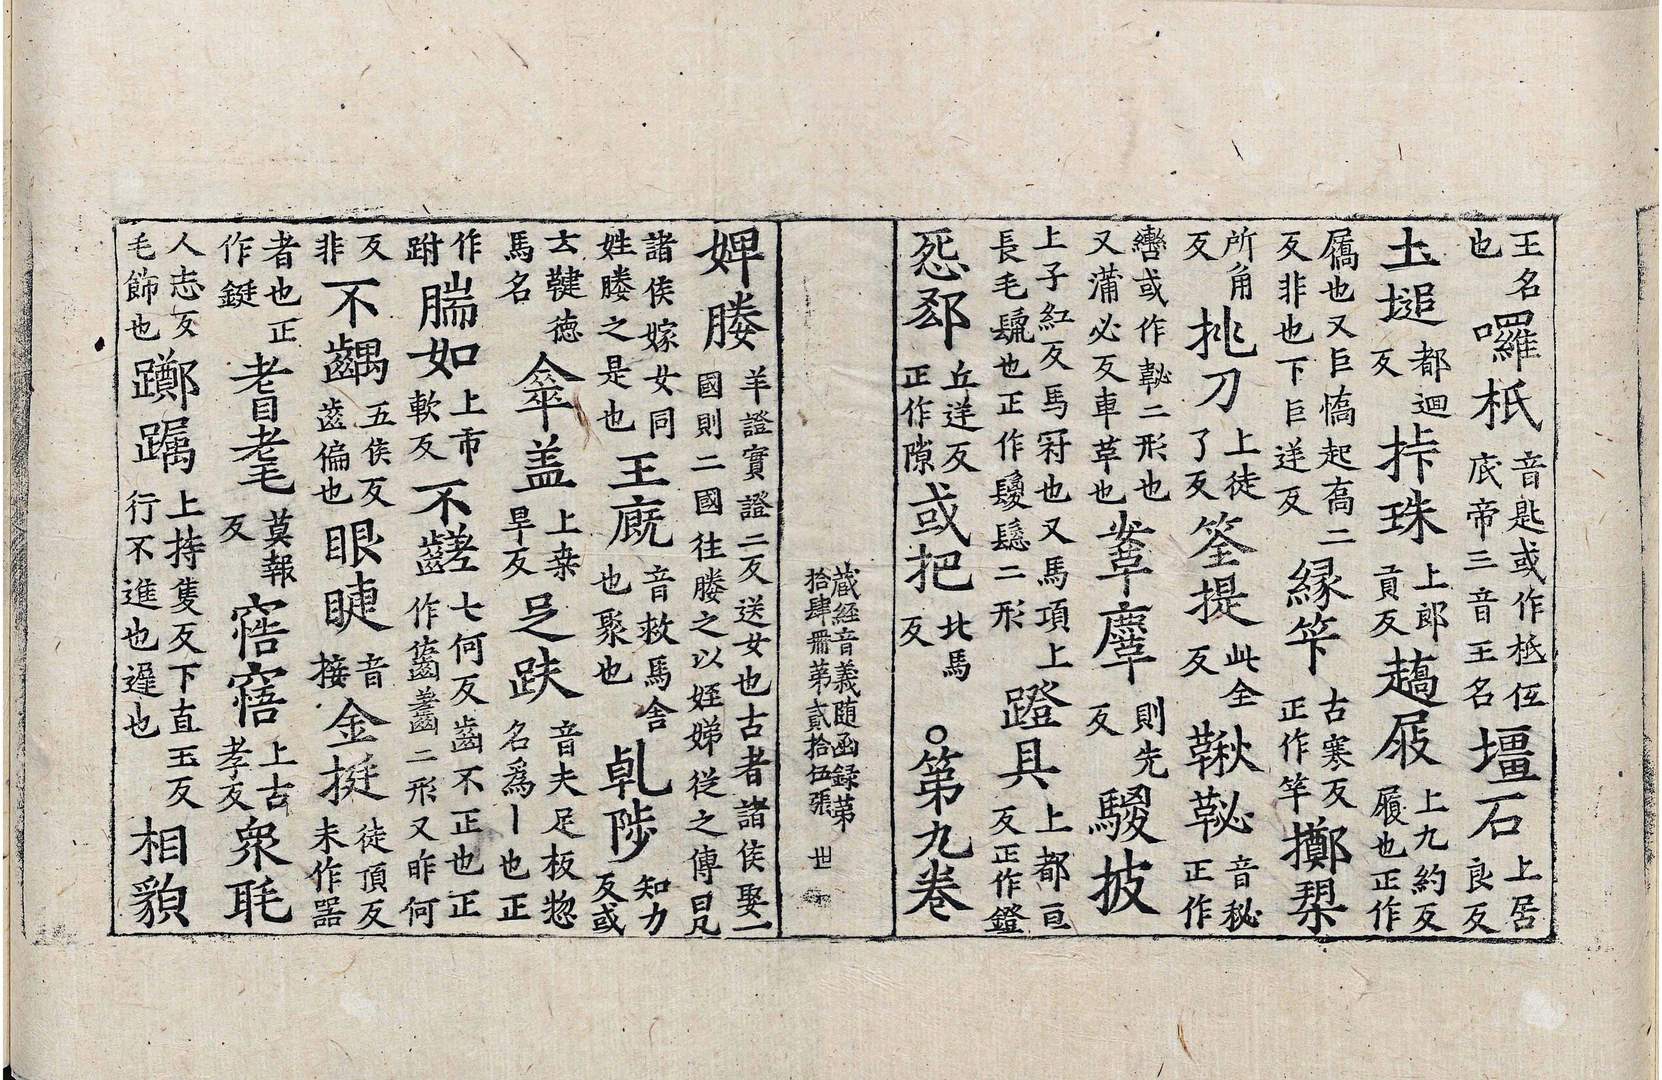 王名也囉柢音匙或作柢伍底帝三音王名壃石上居良反
土塠都迴反㧳珠上郎貢反趫屐上九約反履也正作
屩也又巨憍起高二反非也下巨逆反緣竿古寒反正作竿擲㮚
所角反挑刀上徒了反筌提此全反鞦䩛音秘正作
轡或作䩛二形也又蒲必反車革也䩗麾則先反騣披
上子紅反馬冠也又馬項上長毛䰇也正作鬉鬆二形蹬具上都亘反正作鐙
怨郄丘逆反正作隙或把北馬反○第九卷
藏經音義随函録苐拾肆冊苐貳拾伍張 世
娉媵羊證實證二反送女也古者諸侯娶一國則二國往媵之以姪娣從之傳曰凡
諸侯嫁女同姓媵之是也王廐音救馬舍也聚也乹陟知力反或
云鞬德馬名傘盖上桒旱反足趺音夫足板惣名爲丨也正
作跗腨如上市軟反不齹七何反齒不正也正作䶢䰈二形又昨何
反非不齵五侯反齒偏也眼睫音接金挺徒頂反未作器
者也正作鋌耆耄莫報反㝛寤上古孝反衆毦
人志反毛飾也躑躅上持隻反下直玉反行不進也遲也相䫉